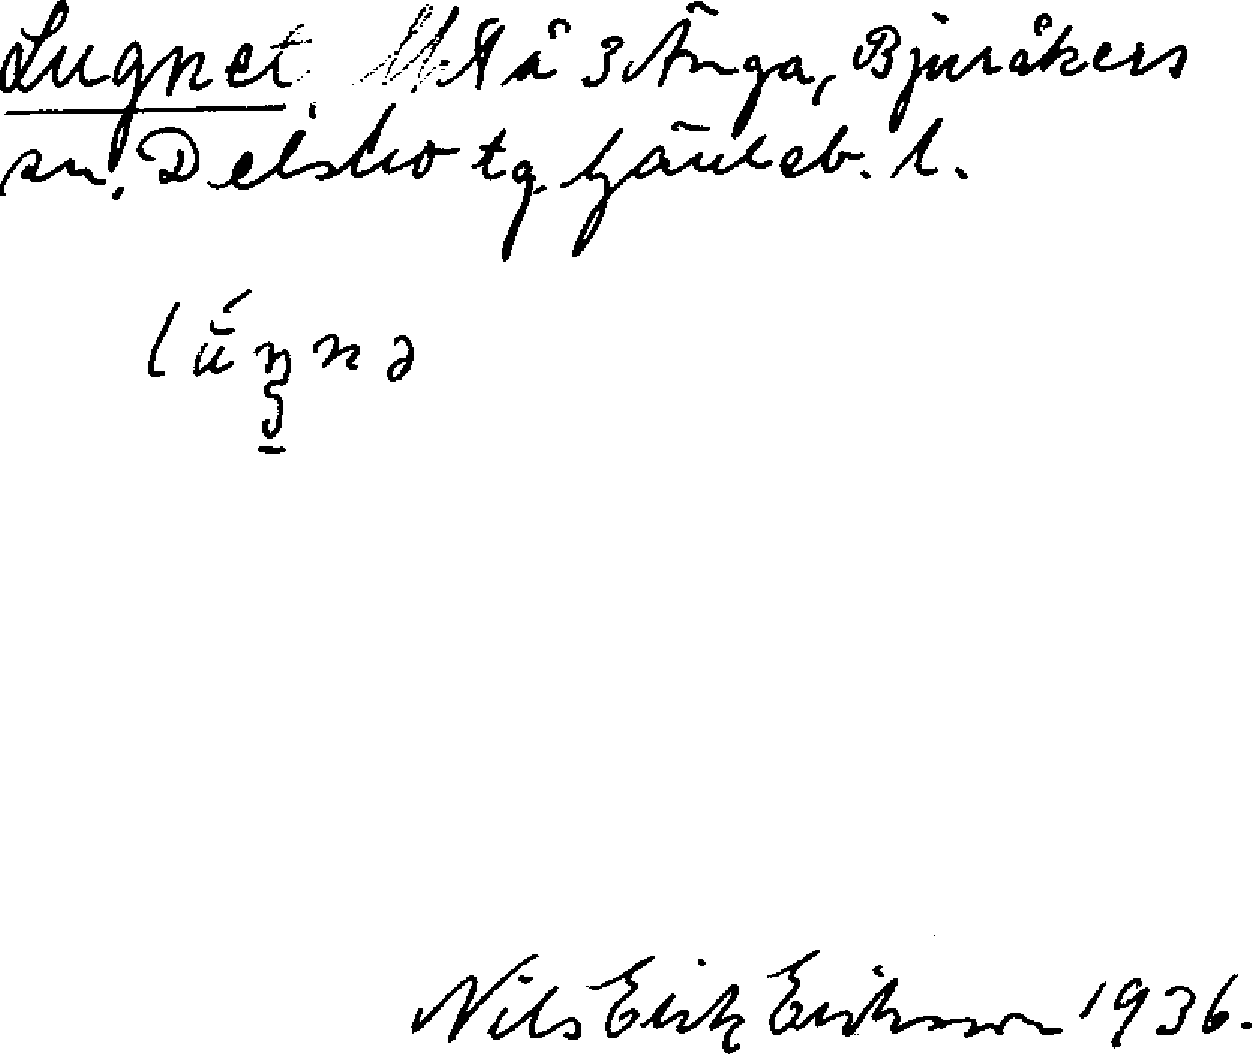 Lugnet. å 3 Änga, Bjuråkers
sn. Delsbo tg. Gävleb. l.
Nils Erik Eriksson 1936.